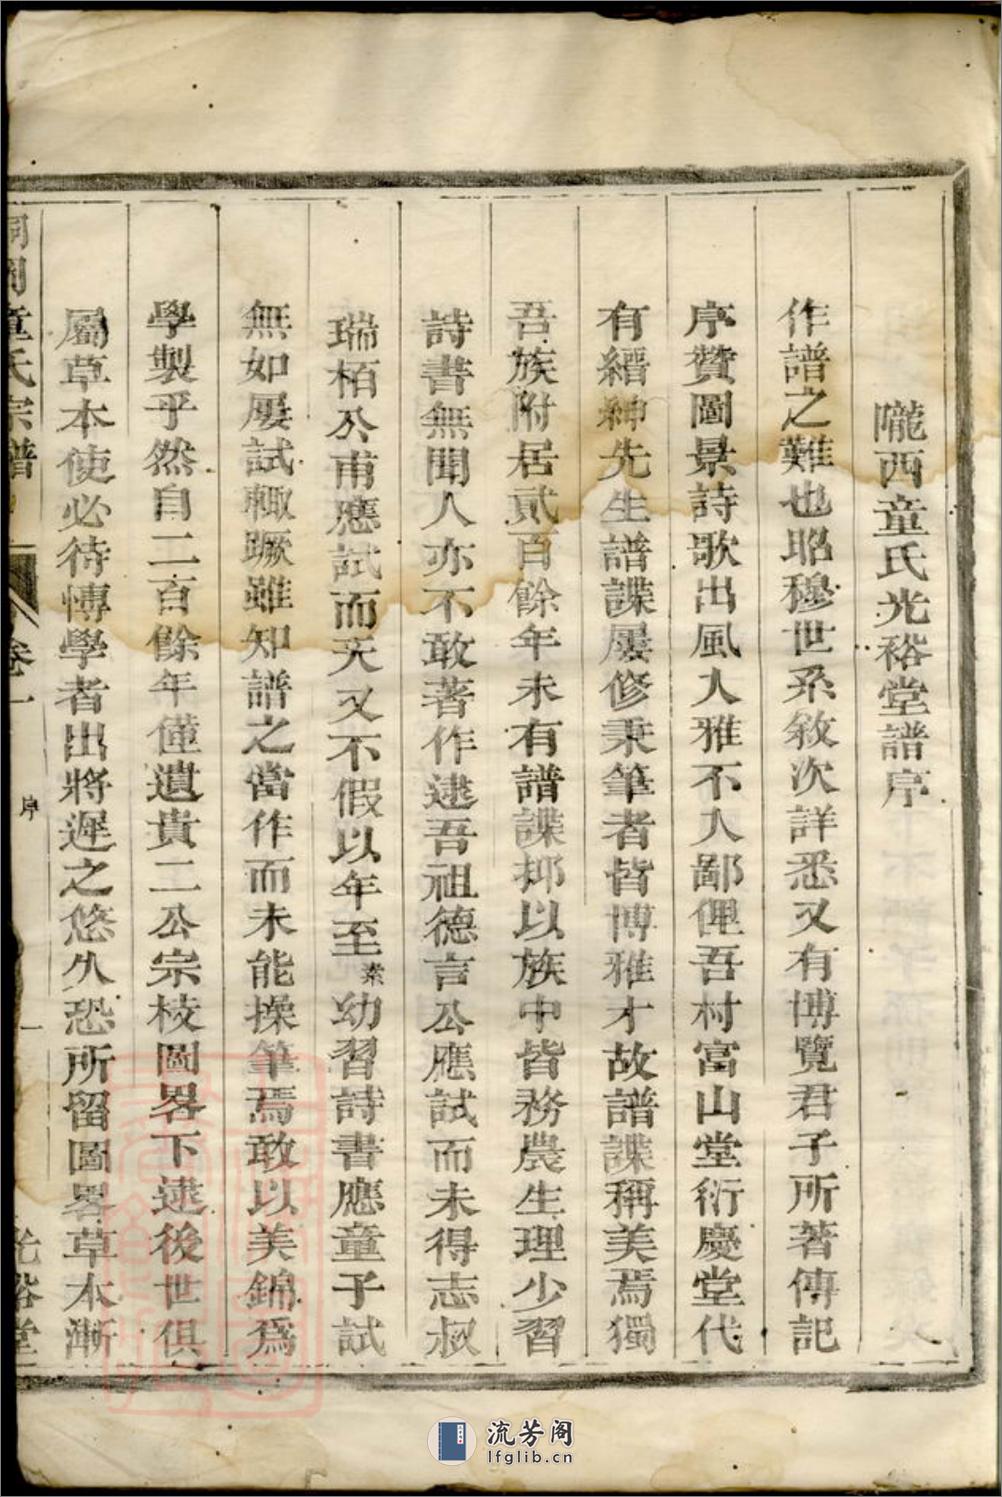 隴西童氏光裕堂譜序
作譜之難也昭穆世系敘次詳悉又有博覽君子所著傳記
序贊圖景詩歌出風入雅不入鄙俚吾村富山堂衍慶堂代
有縉紳先生譜諜屢修秉筆者皆博雅才故譜諜稱美焉獨
吾族附居貳百餘年未有譜諜抑以族中皆務農生理少習
詩書無聞人亦不敢著作逮吾祖德言公應試而未得志叔
瑞栢公甫應試而夭又不假以年至素幼習詩書應童子試
無如屢試輙蹶雖知譜之當作而未能操筆焉敢以美錦爲
學製乎然自二百餘年僅遺貴二公宗枝圖畧下逮後世俱
屬草本使必待博學者出將遲之悠久恐所留圖畧草本漸
童氏宗譜
卷一
序
一
光裕堂
流芳阁
lfglib.cn